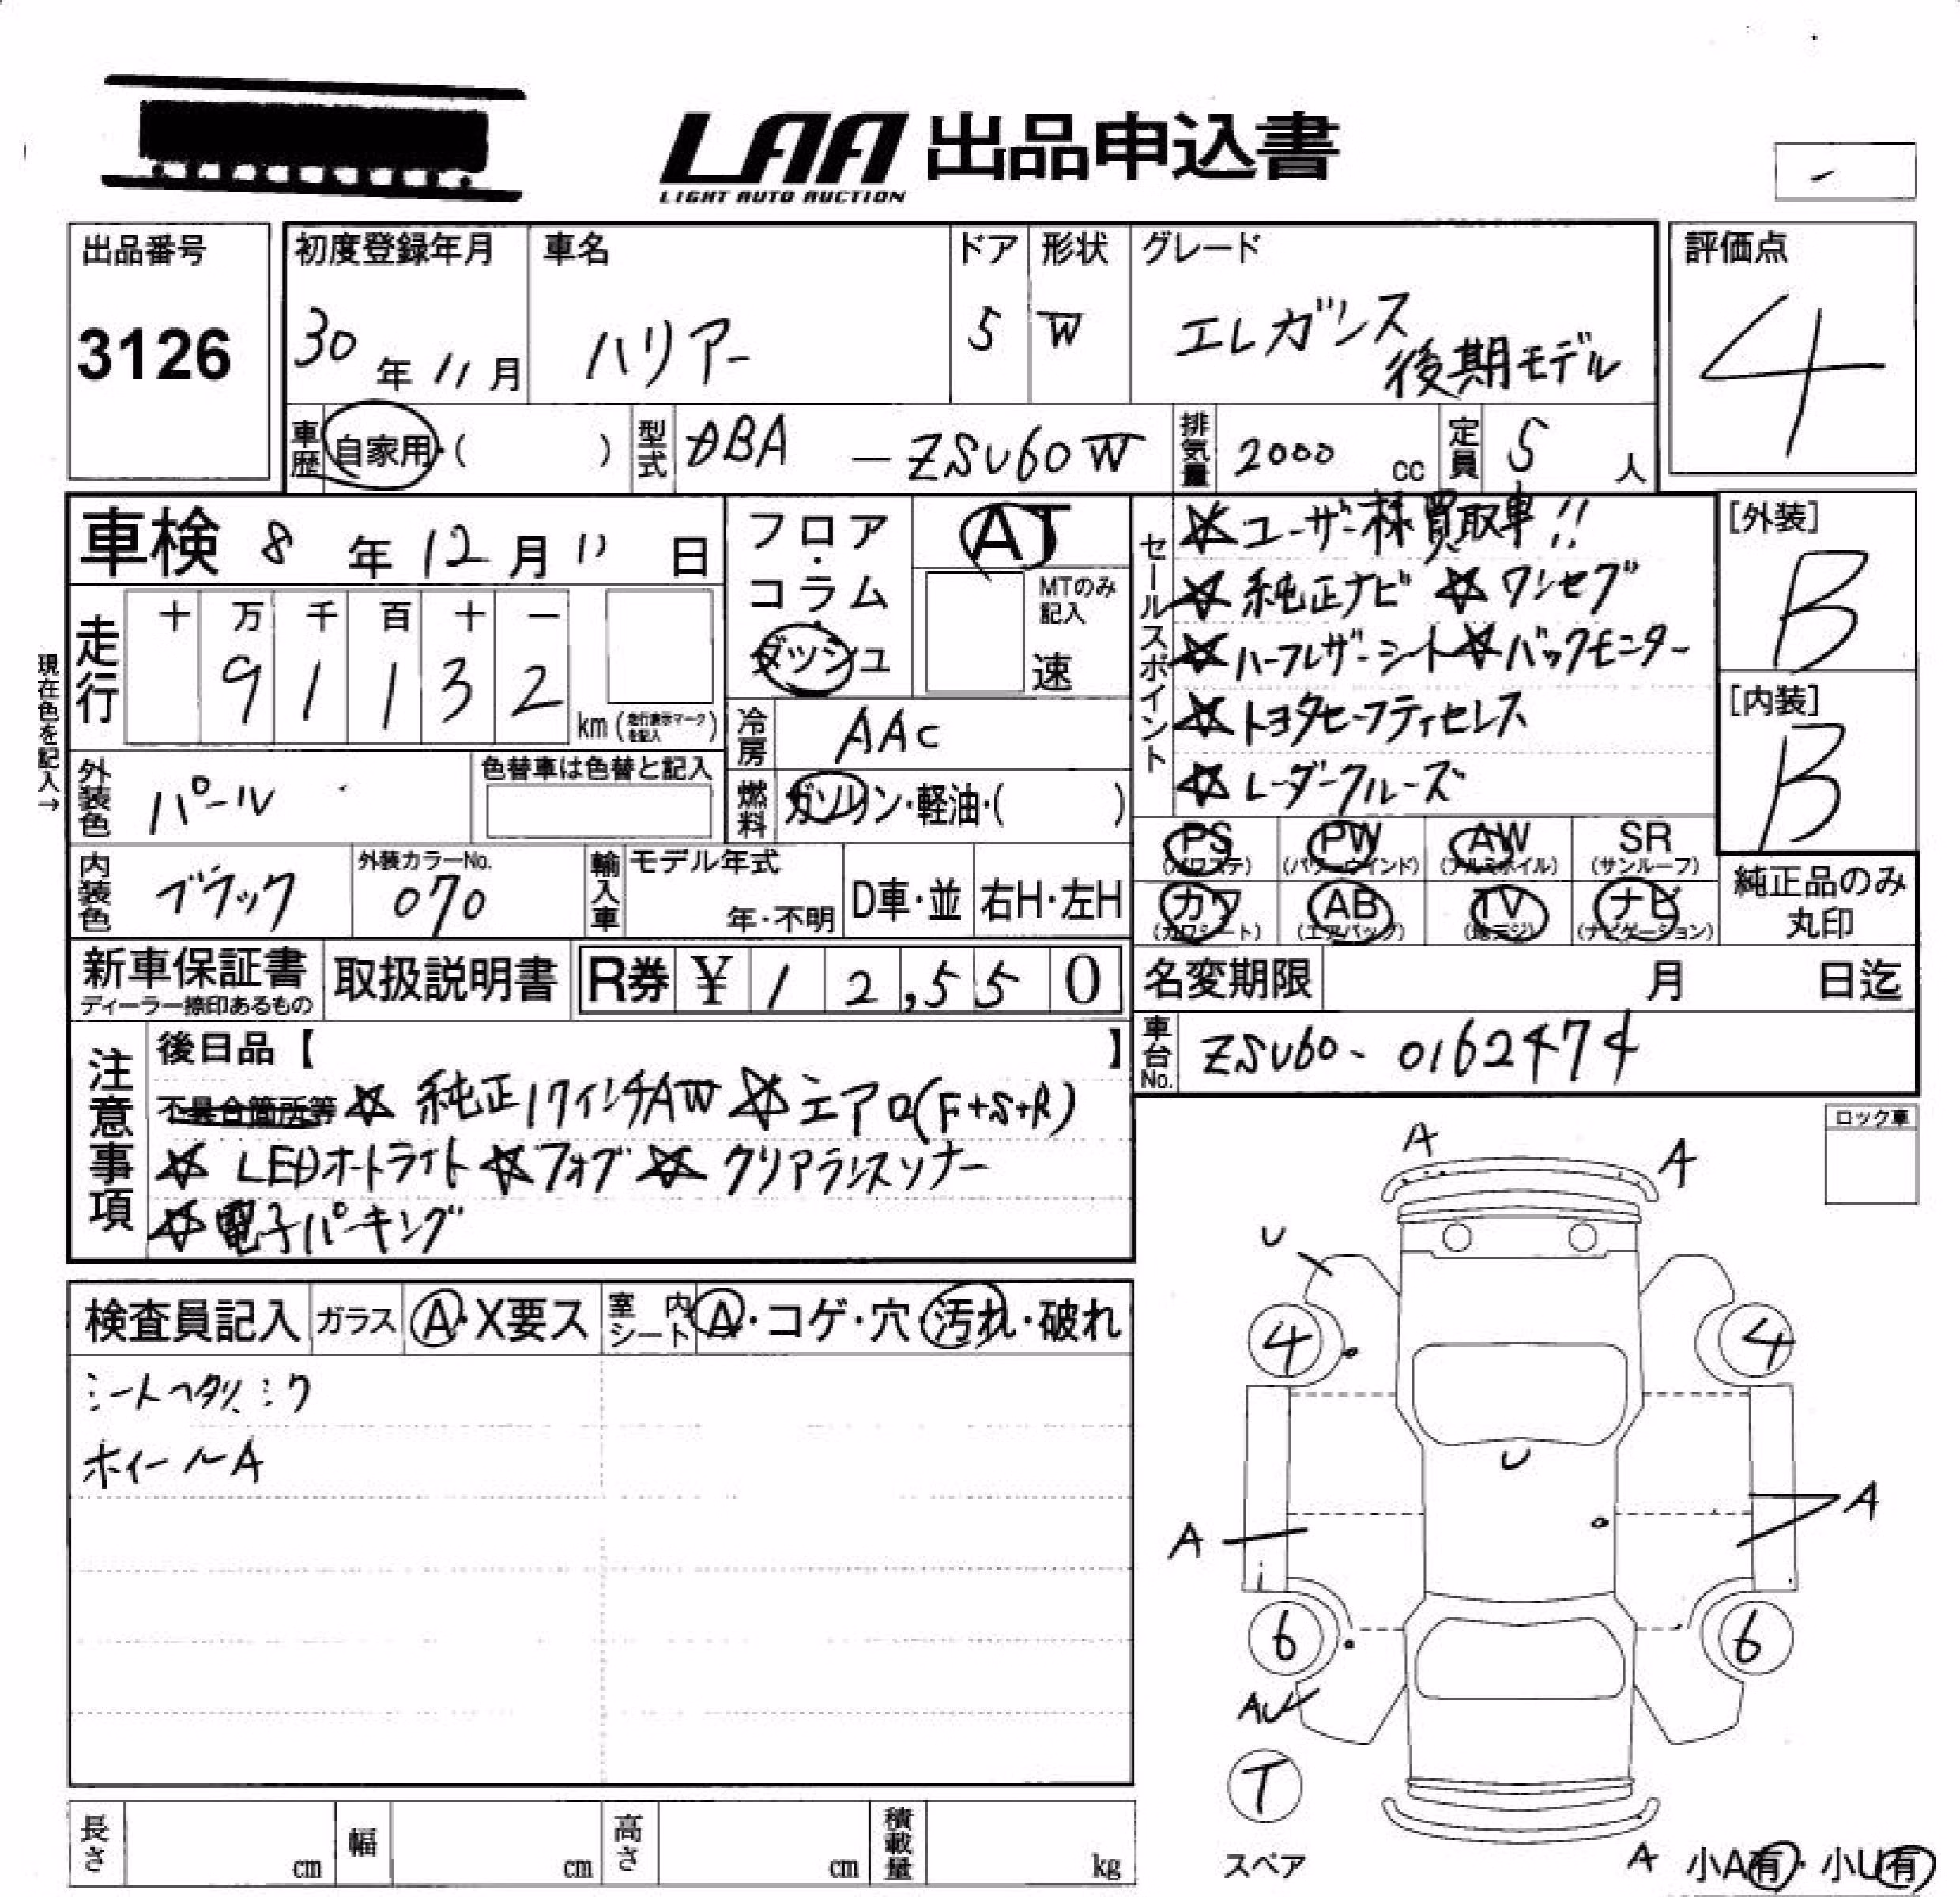 LAA 出品申込書
LIGHT AUTO AUCTION
-
出品番号
3126
初度登録年月
30年11月
車名
ハリアー
ドア
5
形状
W
グレード
エレガンス
後期モデル
評価点
4
車歴 自家用・( )
型式 DBA - ZSU60W
排気量 2000 cc
定員 5 人
車検 8年12月11日
走行
十 万 千 百 十 一
9 1 1 3 2
km (走行表示マークを記入)
現在色を記入→
外装色 パール
色替車は色替と記入
内装色 ブラック
外装カラーNo.
070
フロア・コラム・ダッシュ
AT
MTのみ記入
速
冷房 AAC
燃料 ガソリン・軽油・( )
輸入車
モデル年式
年・不明
D車・並
右H・左H
セールスポイント
☆ユーザー様買取車!!
☆純正ナビ ☆ワンセグ
☆ハーフレザーシート☆バックモニター
☆トヨタセーフティセンス
☆レーダークルーズ
[外装]
B
[内装]
B
PS (パワステ)
PW (パワーウインド)
AW (アルミホイル)
SR (サンルーフ)
カワ (カワシート)
AB (エアバック)
TV (地デジ)
ナビ (ナビゲーション)
純正品のみ
丸印
新車保証書
ディーラー捺印あるもの
取扱説明書
R券 ¥ 12,550
名変期限 月 日迄
車台No. ZSU60-0162474
注意事項
後日品【 】
不具合箇所等 ☆純正17インチAW ☆エアロ(F+S+R)
☆LEDオートライト☆フォグ☆クリアランスソナー
☆電子パーキング
ロック車
検査員記入
ガラス A・X要ス
室内シート A・コゲ・穴・汚れ・破れ
シートヘタリ、シワ
ホイールA
A
A
U
4
4
U
A
A
6
6
AU
T
スペア
A 小A有・小U有
長さ cm
幅 cm
高さ cm
積載量 kg